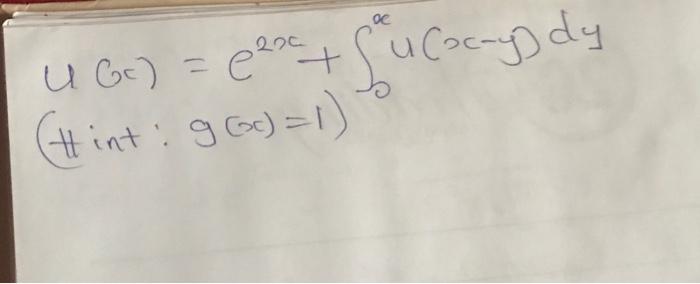 u(x) = e^{2x} + ∫_0^x u(x-y) dy
(Hint: g(x) = 1)